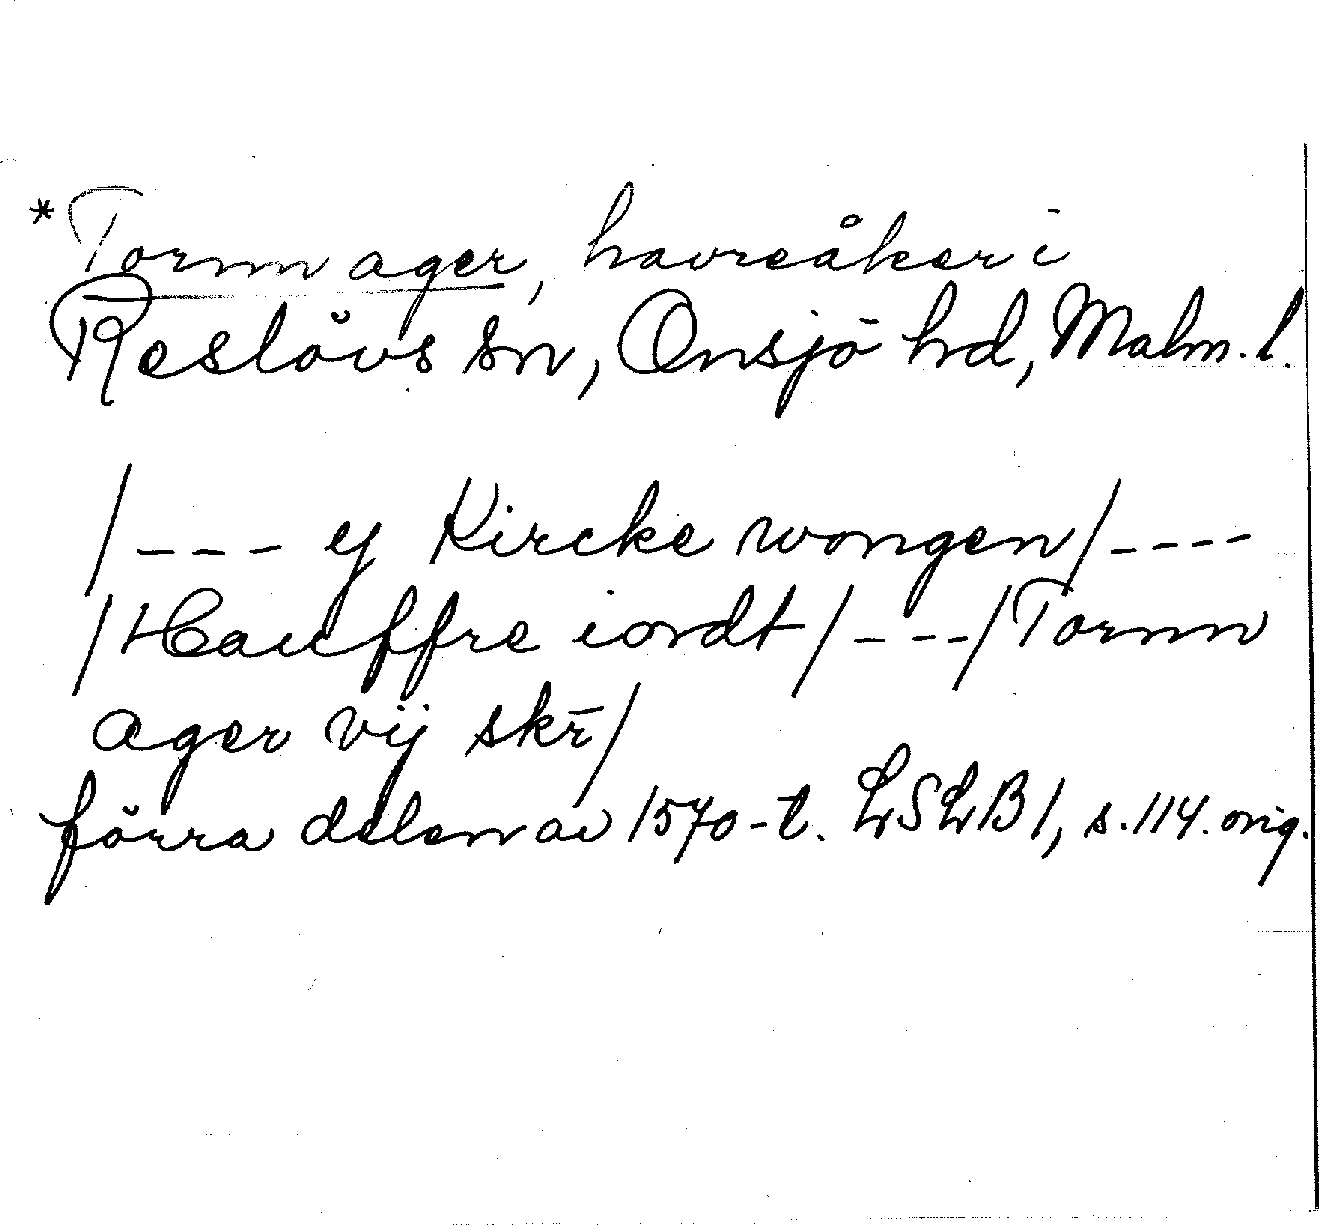 *Tornn ager, havreåker i
Reslövs sn, Onsjö hd, Malm. l.
/--- ej Kircke wongen/----
/Hauffre iordt/---/Tornn
ager vij skr̄/
förra delen av 1570-t. LSLB 1, s. 114. orig.